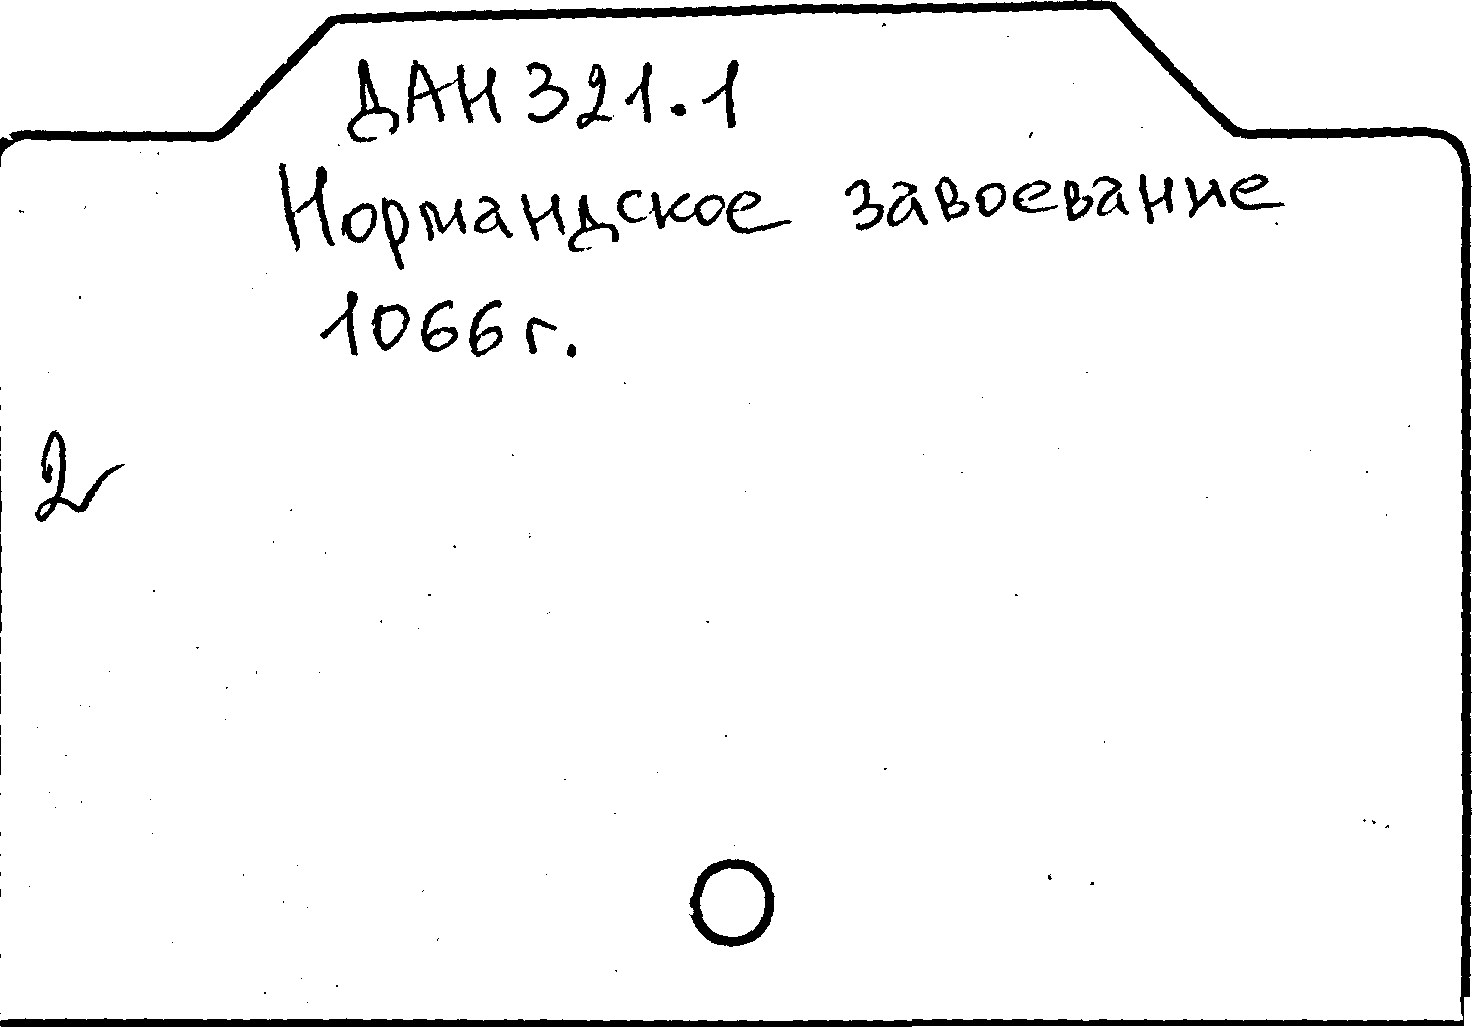 ДАН 321.1
Нормандское завоевание
1066 г.
2